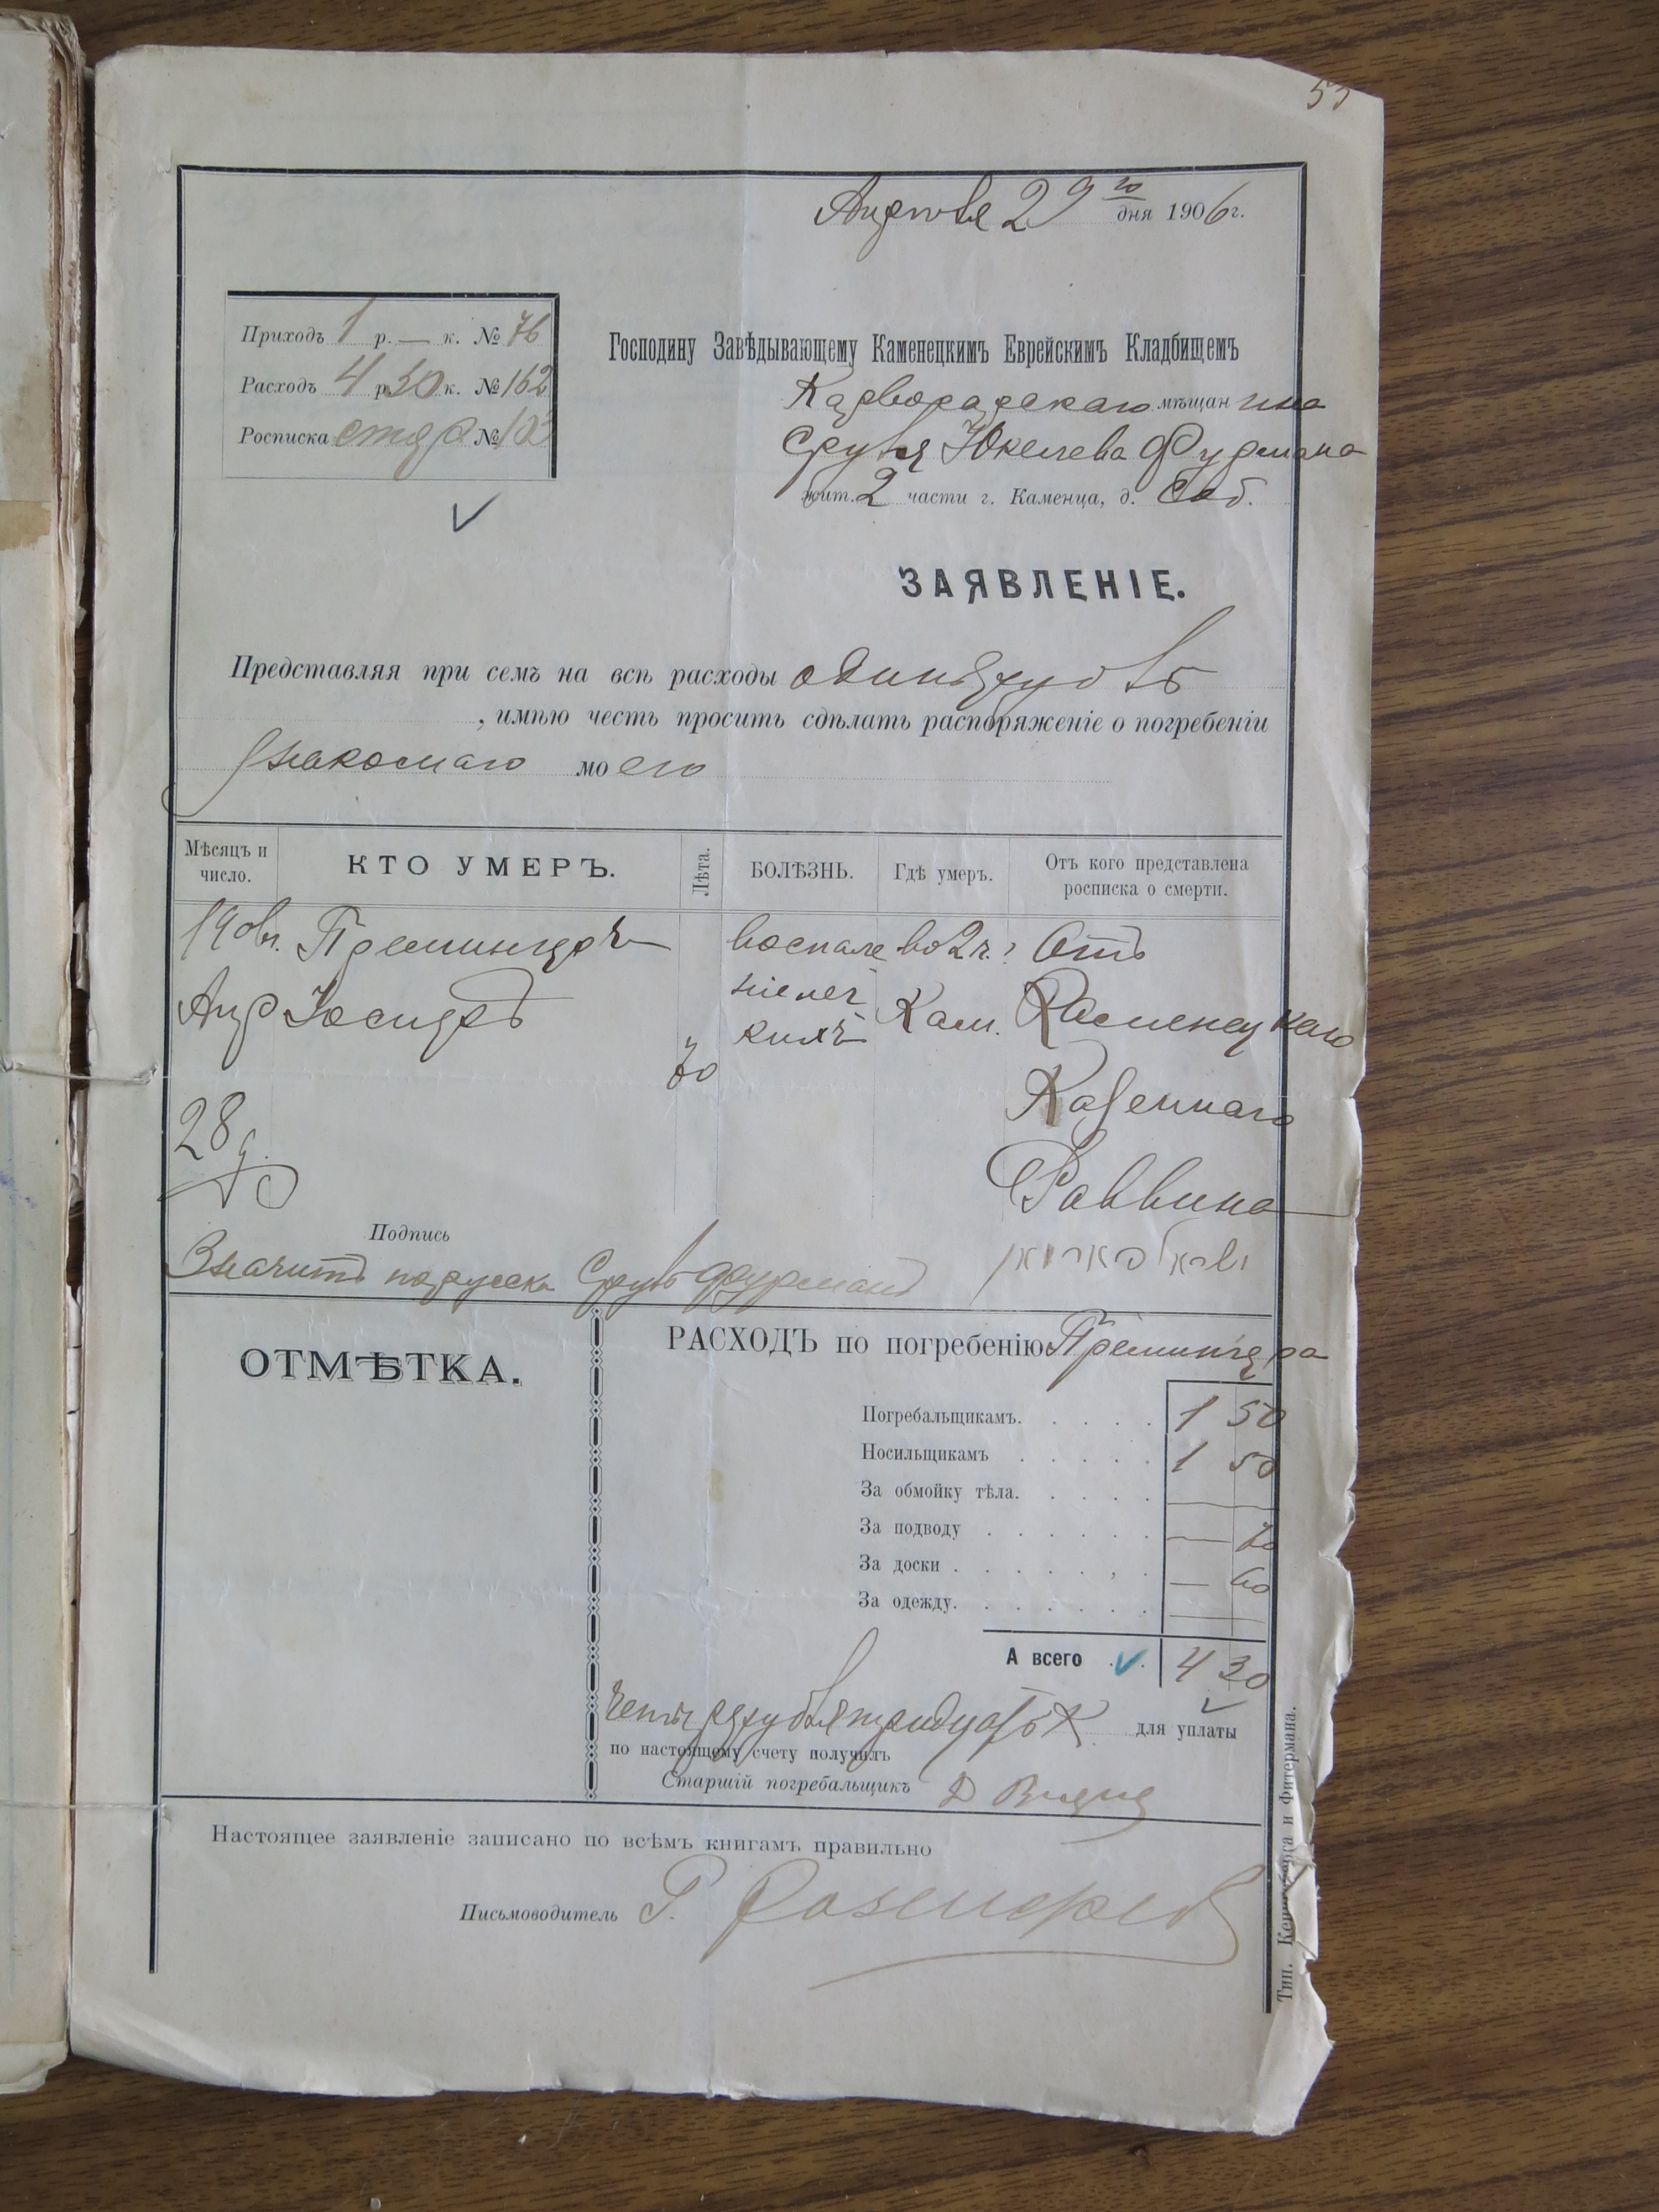 Апрѣля 29 го дня 1906 г.
Приходъ 1 р. — к. № 76
Расходъ 4 р. 30 к. № 162
Росписка №
Господину Завѣдывающему Каменецкимъ Еврейскимъ Кладбищемъ
мѣщанина
Сруля Юкелева Фурмана
жит. 2 части г. Каменца, д. Соб.
ЗАЯВЛЕНІЕ.
Представляя при семъ на всѣ расходы одинъ рубль
, имѣю честь просить сдѣлать распоряженіе о погребеніи
Знакомаго моего
Мѣсяцъ и число. КТО УМЕРЪ. Лѣта. БОЛѢЗНЬ. Гдѣ умеръ. Отъ кого представлена росписка о смерти.
Премингеръ воспале во 2 ч. Отъ
Апр ніе лег Кам. Каменецкаго
70 кихъ
Казеннаго
28
Раввина
Подпись
Значитъ по русски Сруль Фурманъ
ОТМѢТКА.
РАСХОДЪ по погребенію Премингера
Погребальщикамъ. 1 50
Носильщикамъ 1 50
За обмойку тѣла. —
За подводу — 70
За доски — 60
За одежду. —
А всего 4 30
Четыре рубля тридцать к. для уплаты
по настоящему счету получилъ
Старшій погребальщикъ
Настоящее заявленіе записано по всѣмъ книгамъ правильно
Письмоводитель Р.
Тип. и Фитермана.